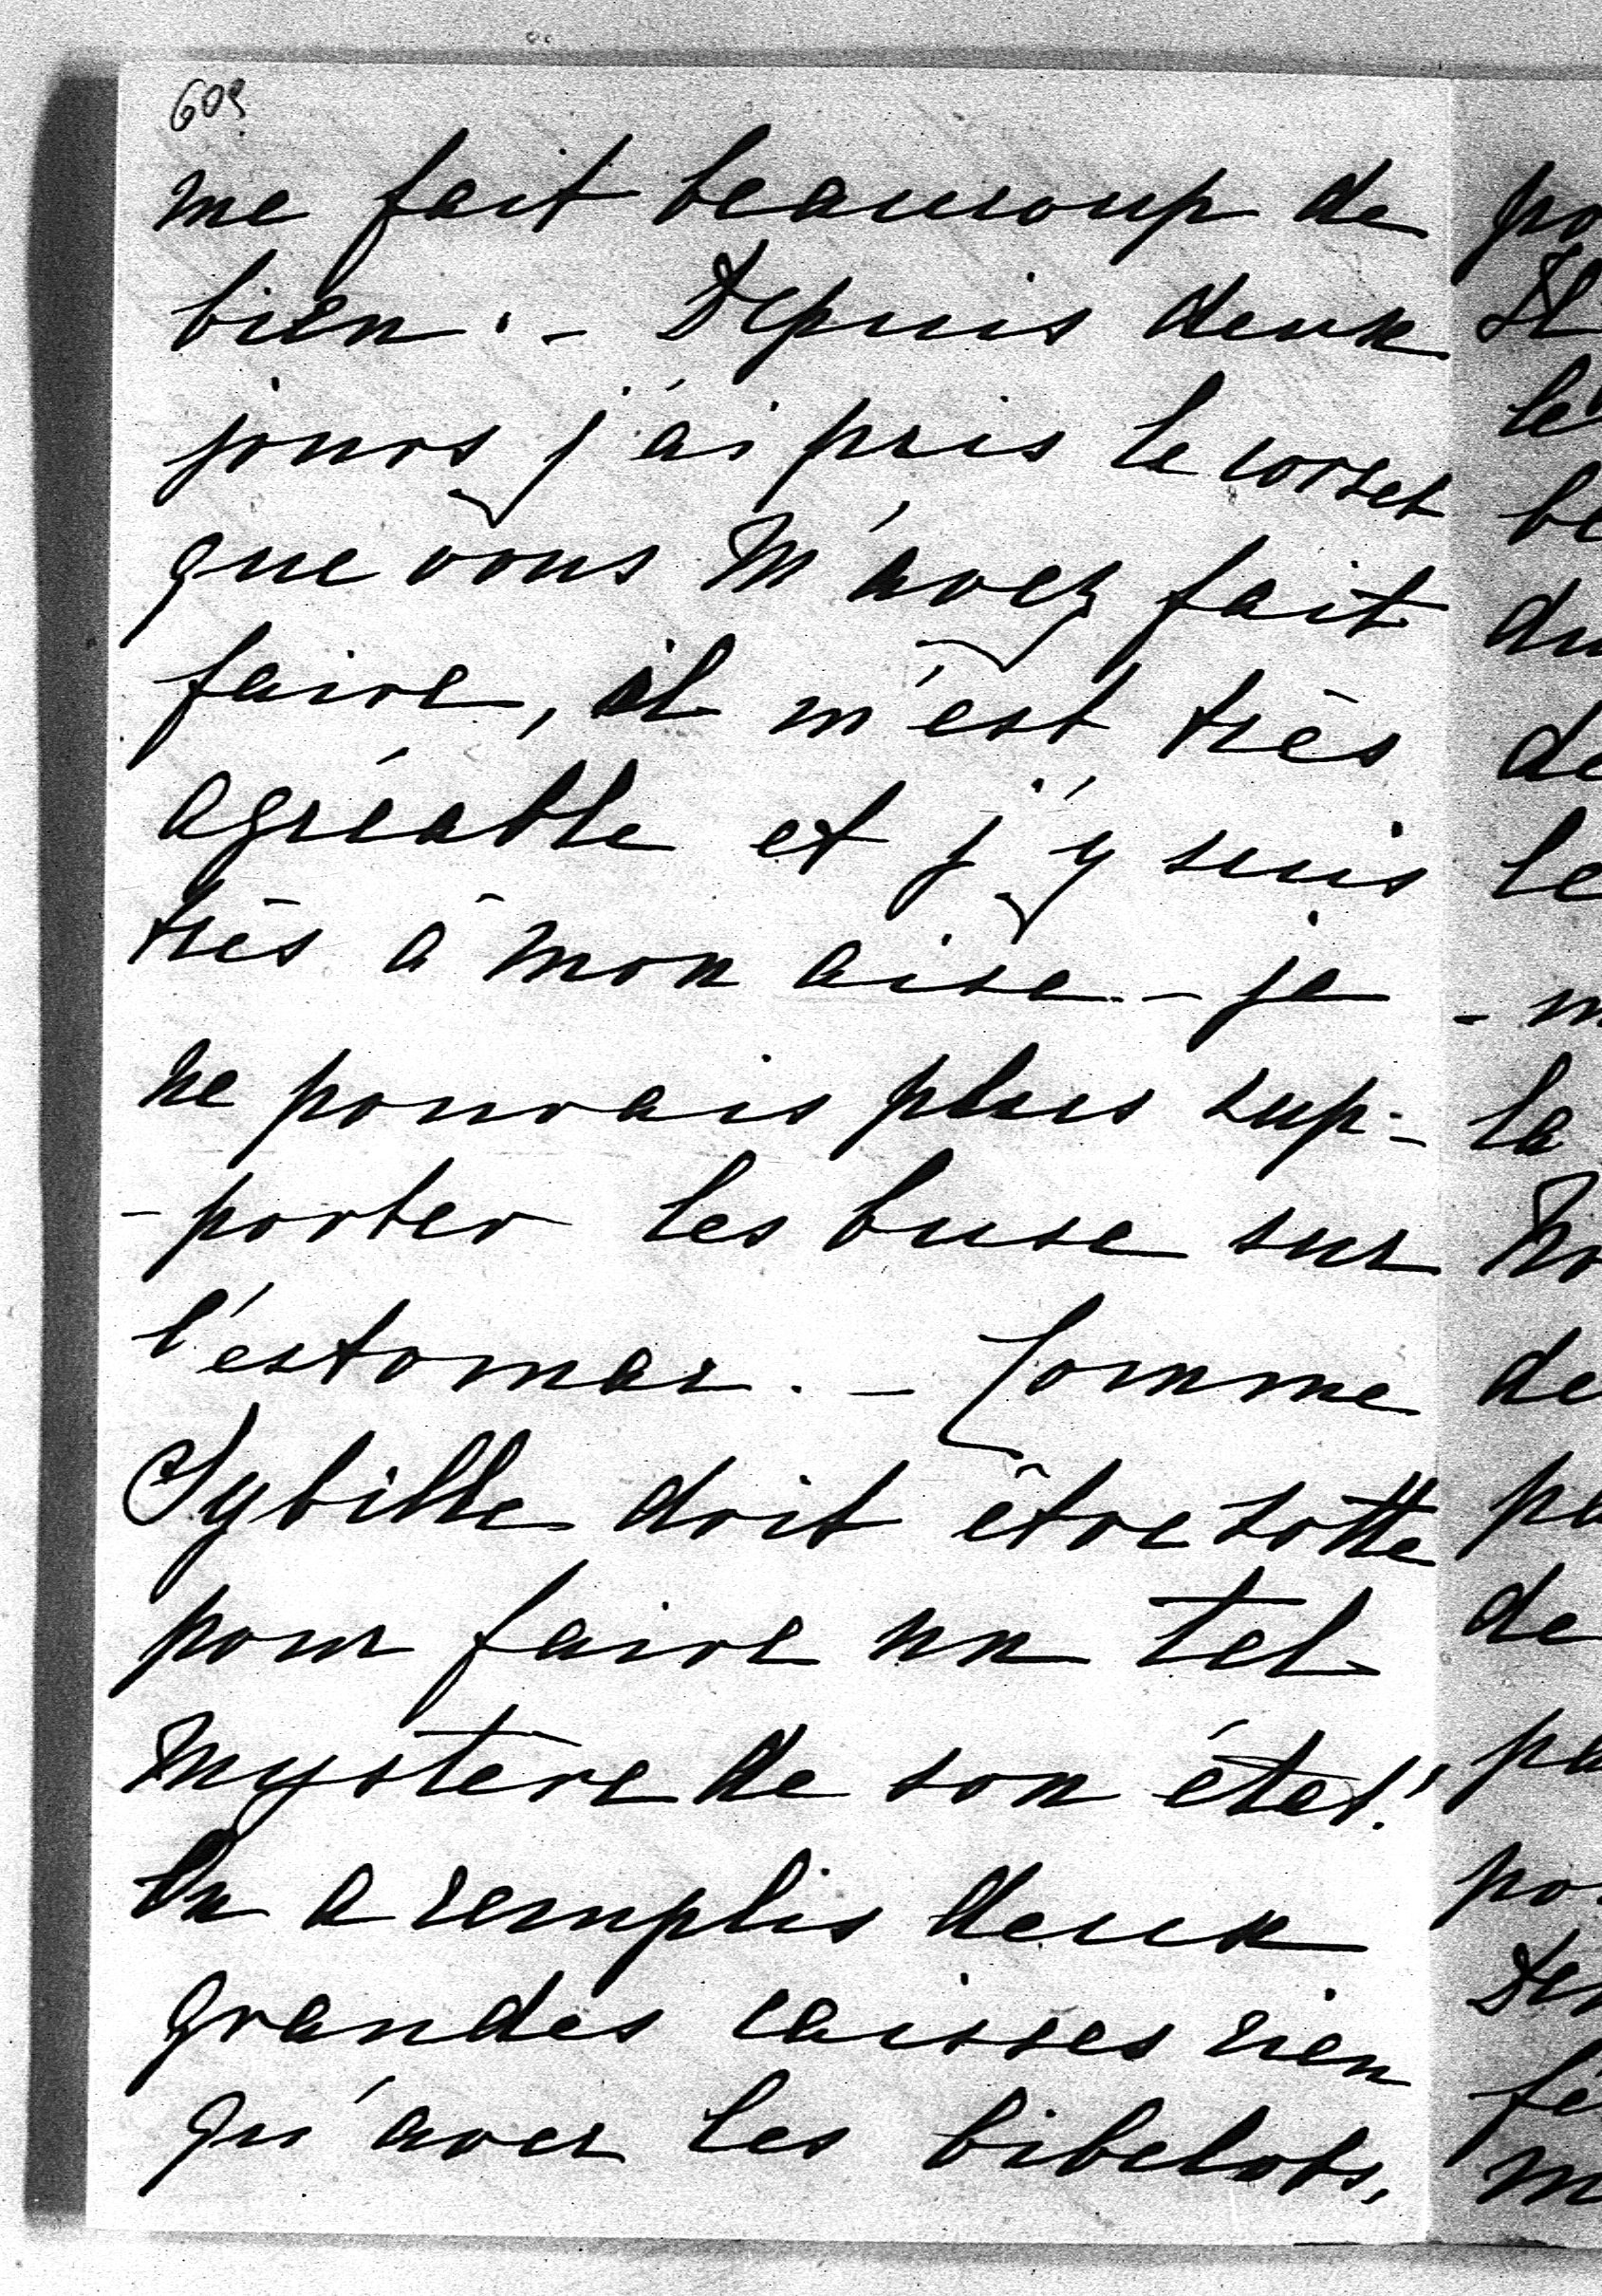 me fait beaucoup de
bien. - Depuis deux
jours j'ai pris le corset
que vous m'avez fait
faire, il m'est très
agréable et j'y suis
très à mon aise - je
ne pouvais plus sup-
- porter les busc sur
l'estomac. - Comme
Sybille doit être sotte
pour faire un tel
mystère de son état!
On a remplis deux
grandes caisses rien
qu'avec les bibelots,